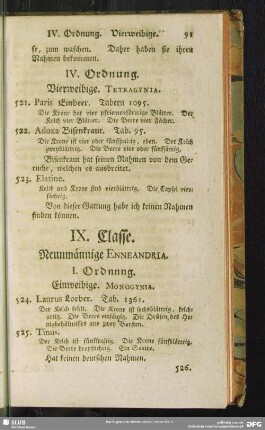 IV. Ordnung. Vierweibige. 91
se, zum waschen. Daher haben sie ihren
Nahmen bekommen.
IV. Ordnung.
Vierweibige. TETRAGYNIA.
521. Paris Einbeer. Tabern 1095.
Die Krone hat vier pfriemenförmige Blätter. Der
Kelch vier Blätter. Die Beere vier Fächer.
522. Adoxa Bisenkraut. Tab. 95.
Die Krone ist vier oder fünfspaltig, oben. Der Kelch
zweyblättrig. Die Beere vier oder fünfsämig.
Bisenkraut hat seinen Nahmen von dem Ge-
ruche, welchen es ausbreitet.
523. Elatine.
Kelch und Krone sind vierblättrig. Die Capsel vier-
fächrig.
Von dieser Gattung habe ich keinen Nahmen
finden können.
IX. Classe.
Neunmännige ENNEANDRIA.
I. Ordnung.
Einweibige. MONOGYNIA.
524. Laurus Lorber. Tab. 1361.
Der Kelch fehlt. Die Krone ist sechsblättrig, kelch-
artig. Die Beere einsamig. Die Drüsen des Ho-
nigbehältnisses aus zwey Borsten.
525. Tinus.
Der Kelch ist fünfspaltig. Die Krone fünfblättrig.
Die Beere dreyfächrig. Ein Saame.
Hat keinen deutschen Nahmen.
526.
SLUB
DFG